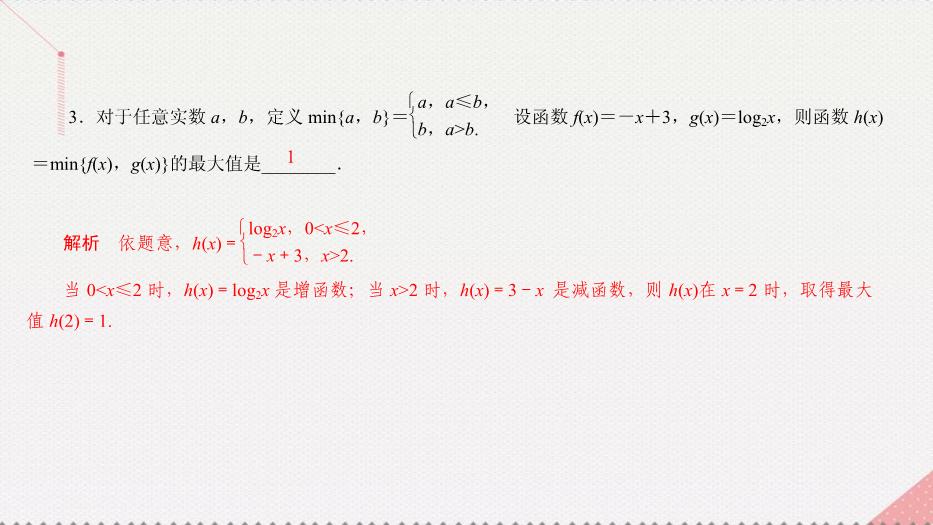 3．对于任意实数 a，b，定义 min{a，b}＝{a，a≤b，b，a>b.　设函数 f(x)＝－x＋3，g(x)＝log₂x，则函数 h(x)
＝min{f(x)，g(x)}的最大值是____1____．
解析　依题意，h(x)={log₂x，0<x≤2，－x+3，x>2.
当 0<x≤2 时，h(x)=log₂x 是增函数；当 x>2 时，h(x)=3－x 是减函数，则 h(x)在 x=2 时，取得最大
值 h(2)=1.